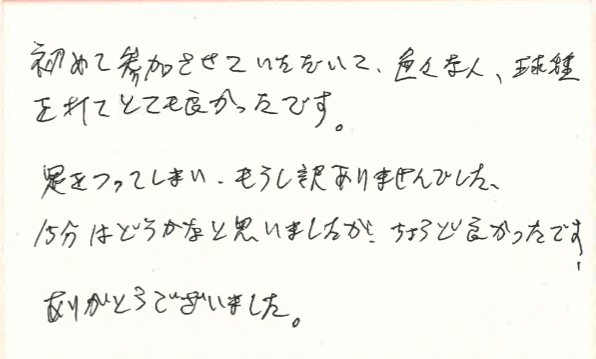 初めて参加させていただいて、色々な人、球種
を打てとても良かったです。
足をつってしまい、もうし訳ありませんでした、
15分はどうかなと思いましたが、ちょうど良かったです!
ありがとうございました。